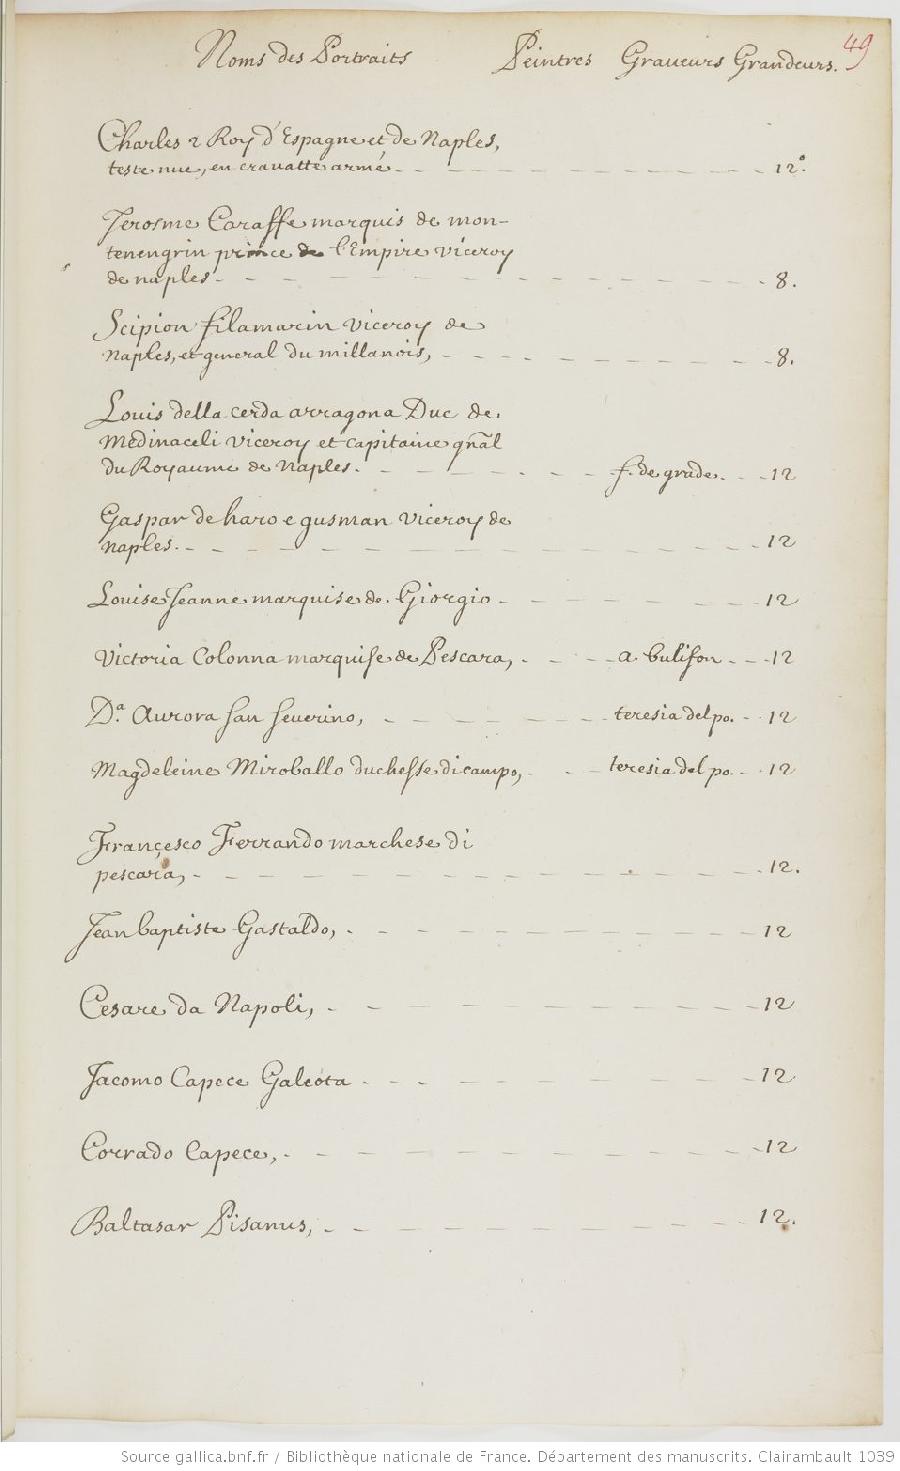 49
Noms des Portraits Peintres Graveurs Grandeurs.
Charles 2 Roy d'Espagne et de Naples,
teste nue, en cravatte armé - - - - - - - - - 12°.
Jerosme Caraffe marquis de mon-
tenengrin prince de l'Empire viceroy
de naples - - - - - - - - - - - 8.
Scipion filamarin viceroy de
naples, et general du millanois, - - - - - - - - 8.
Louis della cerda arragona Duc de
Medinaceli viceroy et capitaine gnãl
du Royaume de Naples. - - - - - - f. de grade. - - 12
Gaspar de haro e gusman viceroy de
naples. - - - - - - - - - - - - - 12
Louise Jeanne marquise de Giorgio - - - - - - - - 12
Victoria Colonna marquise de Pescara, - - - a bulifon - - - 12
Da. Aurora San Severino, - - - - - - teresia del po. - - 12
Magdeleine Miroballo duchesse di campo, - - - teresia del po - - 12
Françesco Ferrando marchese di
pescara, - - - - - - - - - - - - - 12.
Jean baptiste Gastaldo, - - - - - - - - - - 12
Cesare da Napoli, - - - - - - - - - - 12
Jacomo Capece Galeota - - - - - - - - - 12
Corrado Capece, - - - - - - - - - - - 12
Baltasar Pisanus, - - - - - - - - - - 12.
Source gallica.bnf.fr / Bibliothèque nationale de France. Département des manuscrits. Clairambault 1039